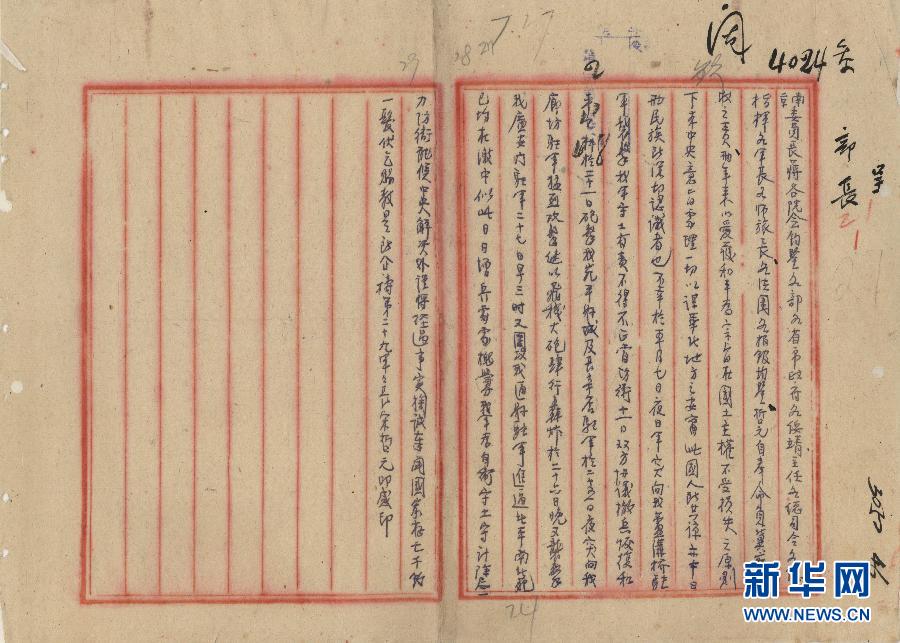 阅
4024
7.17
29
28 29
部长
呈
南京委员長蒋各院会钧鑒各部各省市政府各绥靖主任各總司令各
指揮各军長各师旅長各法團各报馆均鑒哲元自奉命負冀
政之责年来以爱護和平為宗旨在國土主權不受损失之原則
下本中央意旨處理一切以謀華北地方之安寧此國人所共諒亦中日
两民族所深切認識者也不幸於本月七日夜日軍突向我蘆溝橋駐
軍襲擊我軍守土有责不得不正當防衛十一日双方协議撤兵恢復和
平於二十一日砲擊我宛平縣城及長辛店駐軍於二十五日夜突向我
廊坊駐軍猛烈攻擊继以飛機大砲肆行轟炸於二十六日晚又襲擊
我廣安門駐軍二十七日早三時又圍攻我通縣駐軍進逼北平南北苑
已均在激中似此日日增兵處處挑釁我軍為自衛守土計除盡
力防衛聽候中央解决外謹将經過事实掬誠奉聞國家存亡千钧
一髮伏乞賜教是所企禱第二十九軍軍長宋哲元叩感印
24
新华网
WWW.NEWS.CN